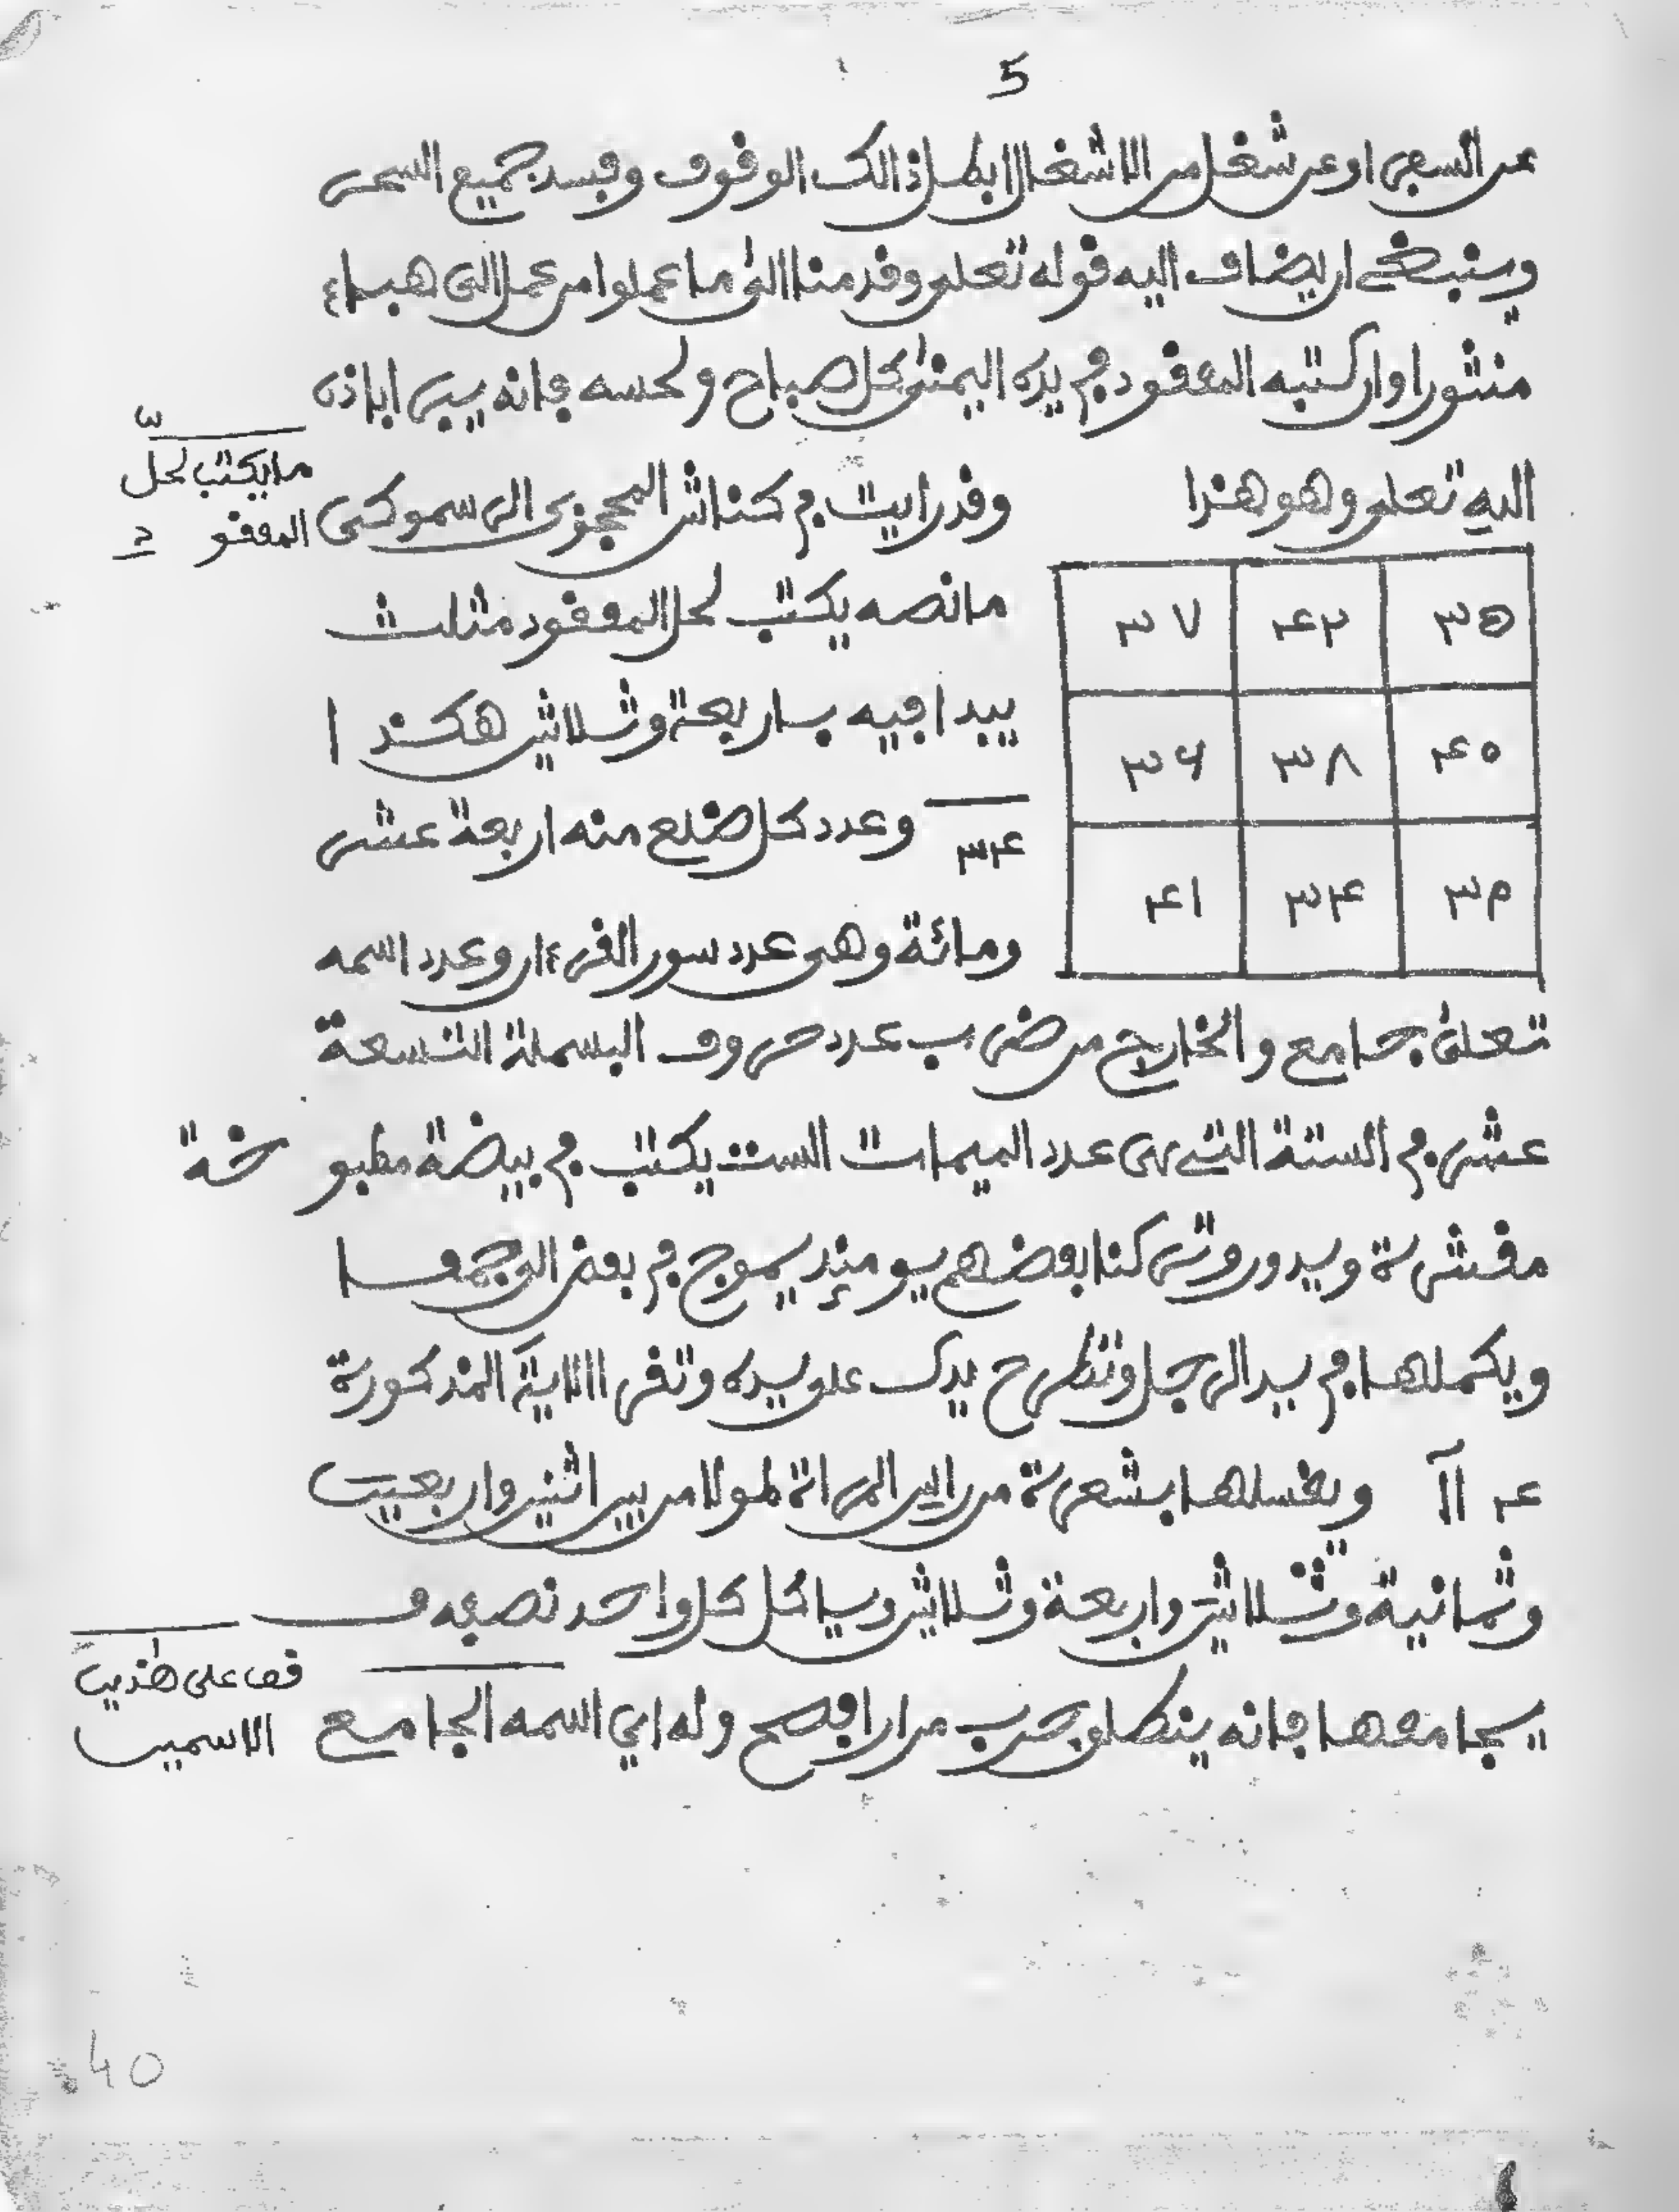 5
عن السفر او عن شغل من الاشغال ابطل ذالك الوقوف وفسد جميع السحر
وينبغي ان يضاف اليه قوله تعلى وقدمنا الى ما عملوا من عمل الى هباء
منثورا وان كتبه المعقود في يده اليمنى كل صباح ولحسه فانه يبرا باذن
الله تعلى وهو هذا
وقد رايت في كناش المحجوبى السموكنى
ما يكتب لحل
المعقود
مانصه يكتب لحل المعقود مثلث
يبدا فيه باربعة وثلاثين هكذا
٣٤ وعدد كل ضلع منه اربعة عشر
ومائة وهى عدد سور القرءان وعدد اسمه
٣٧ ٤٢ ٣٥
٣٦ ٣٨ ٤٠
٤١ ٣٤ ٣٩
تعلى جامع والخارج من ضرب عدد حروف البسملة التسعة
عشر في الستة التي هى عدد الميمات الست يكتب في بيضة مطبوخة
مقشرة ويدور وتركنا بعضهم يومئذ يموج في بعض الى جمعا
ويكملها في يد الرجل وتطرح يدك على يده وتقرا الاية المذكورة
ويفسلها بشعرة من راس المراة لمولا من بين اثنين واربعين
وثمانية وثلاثين واربعة وثلاثين وياكل كل واحد نصفه و
يجامعها فانه ينطلق جرب مرارا فصح وله اي اسمه الجامع
قف على هذين
الاسمين
40